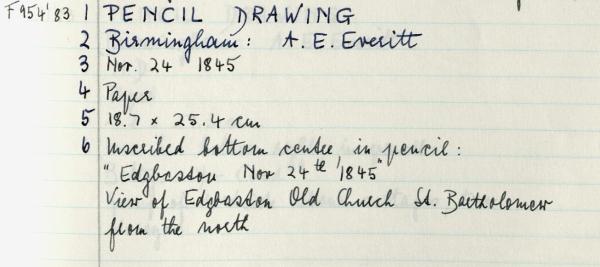 F954'83 1 PENCIL DRAWING
2 Birmingham: A. E. Everitt
3 Nov. 24 1845
4 Paper
5 18.7 x 25.4 cm
6 Inscribed bottom centre, in pencil:
"Edgbaston Nov 24th 1845"
View of Edgbaston Old Church St. Bartholomew
from the north